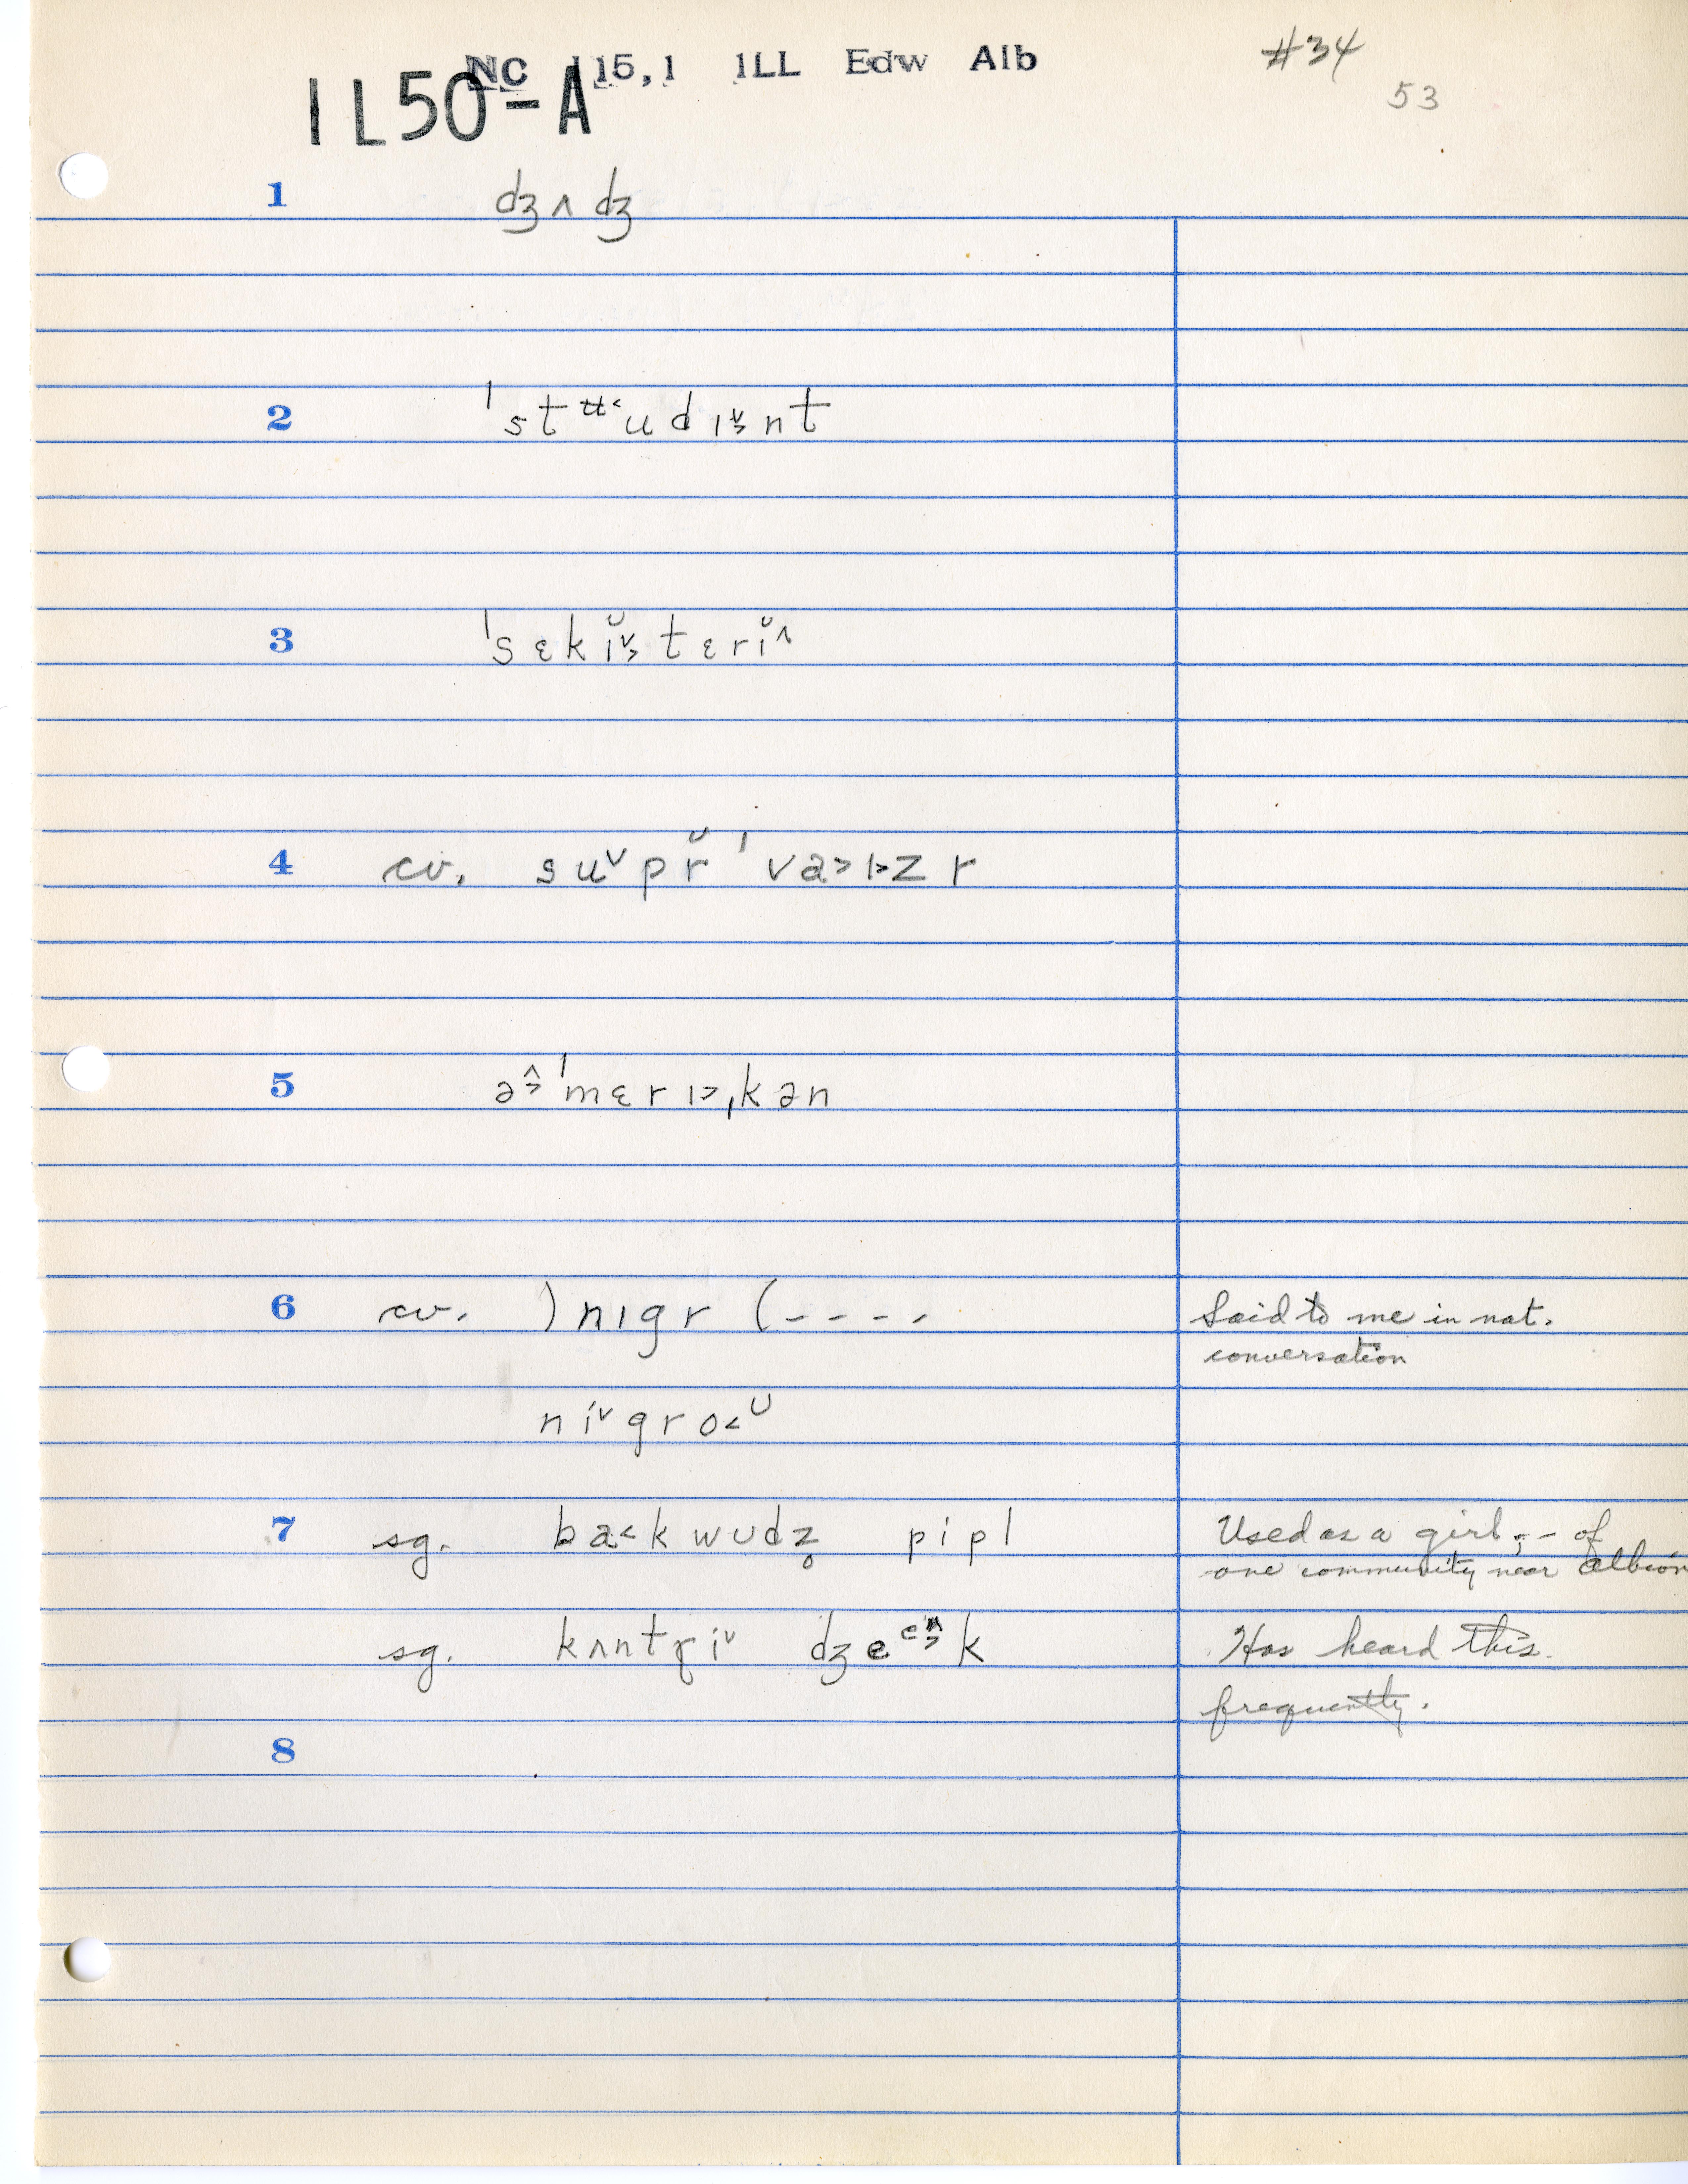 NC 115,1 ILL Edw Alb #34
IL50-A 53
1 dʒʌdʒ
2 ˈstʉ˂udɪ̬˃nt
3 ˈsɛkĭ̬˃tɛrĭ^
4 cv. su̬pr̆ˈva˃ɪ˃zr
5 ə^˃ˈmɛrɪ˃ˌkən
6 cv. )nɪgr (---- Said to me in nat.
conversation
ni̬gro˂ᴜ
7 sg. ba˂kwʊdz̥ pipl Used as a girl;- of
one community near Albion
sg. kʌntɽi̬ dʒeᵉ˃k Has heard this
frequently.
8